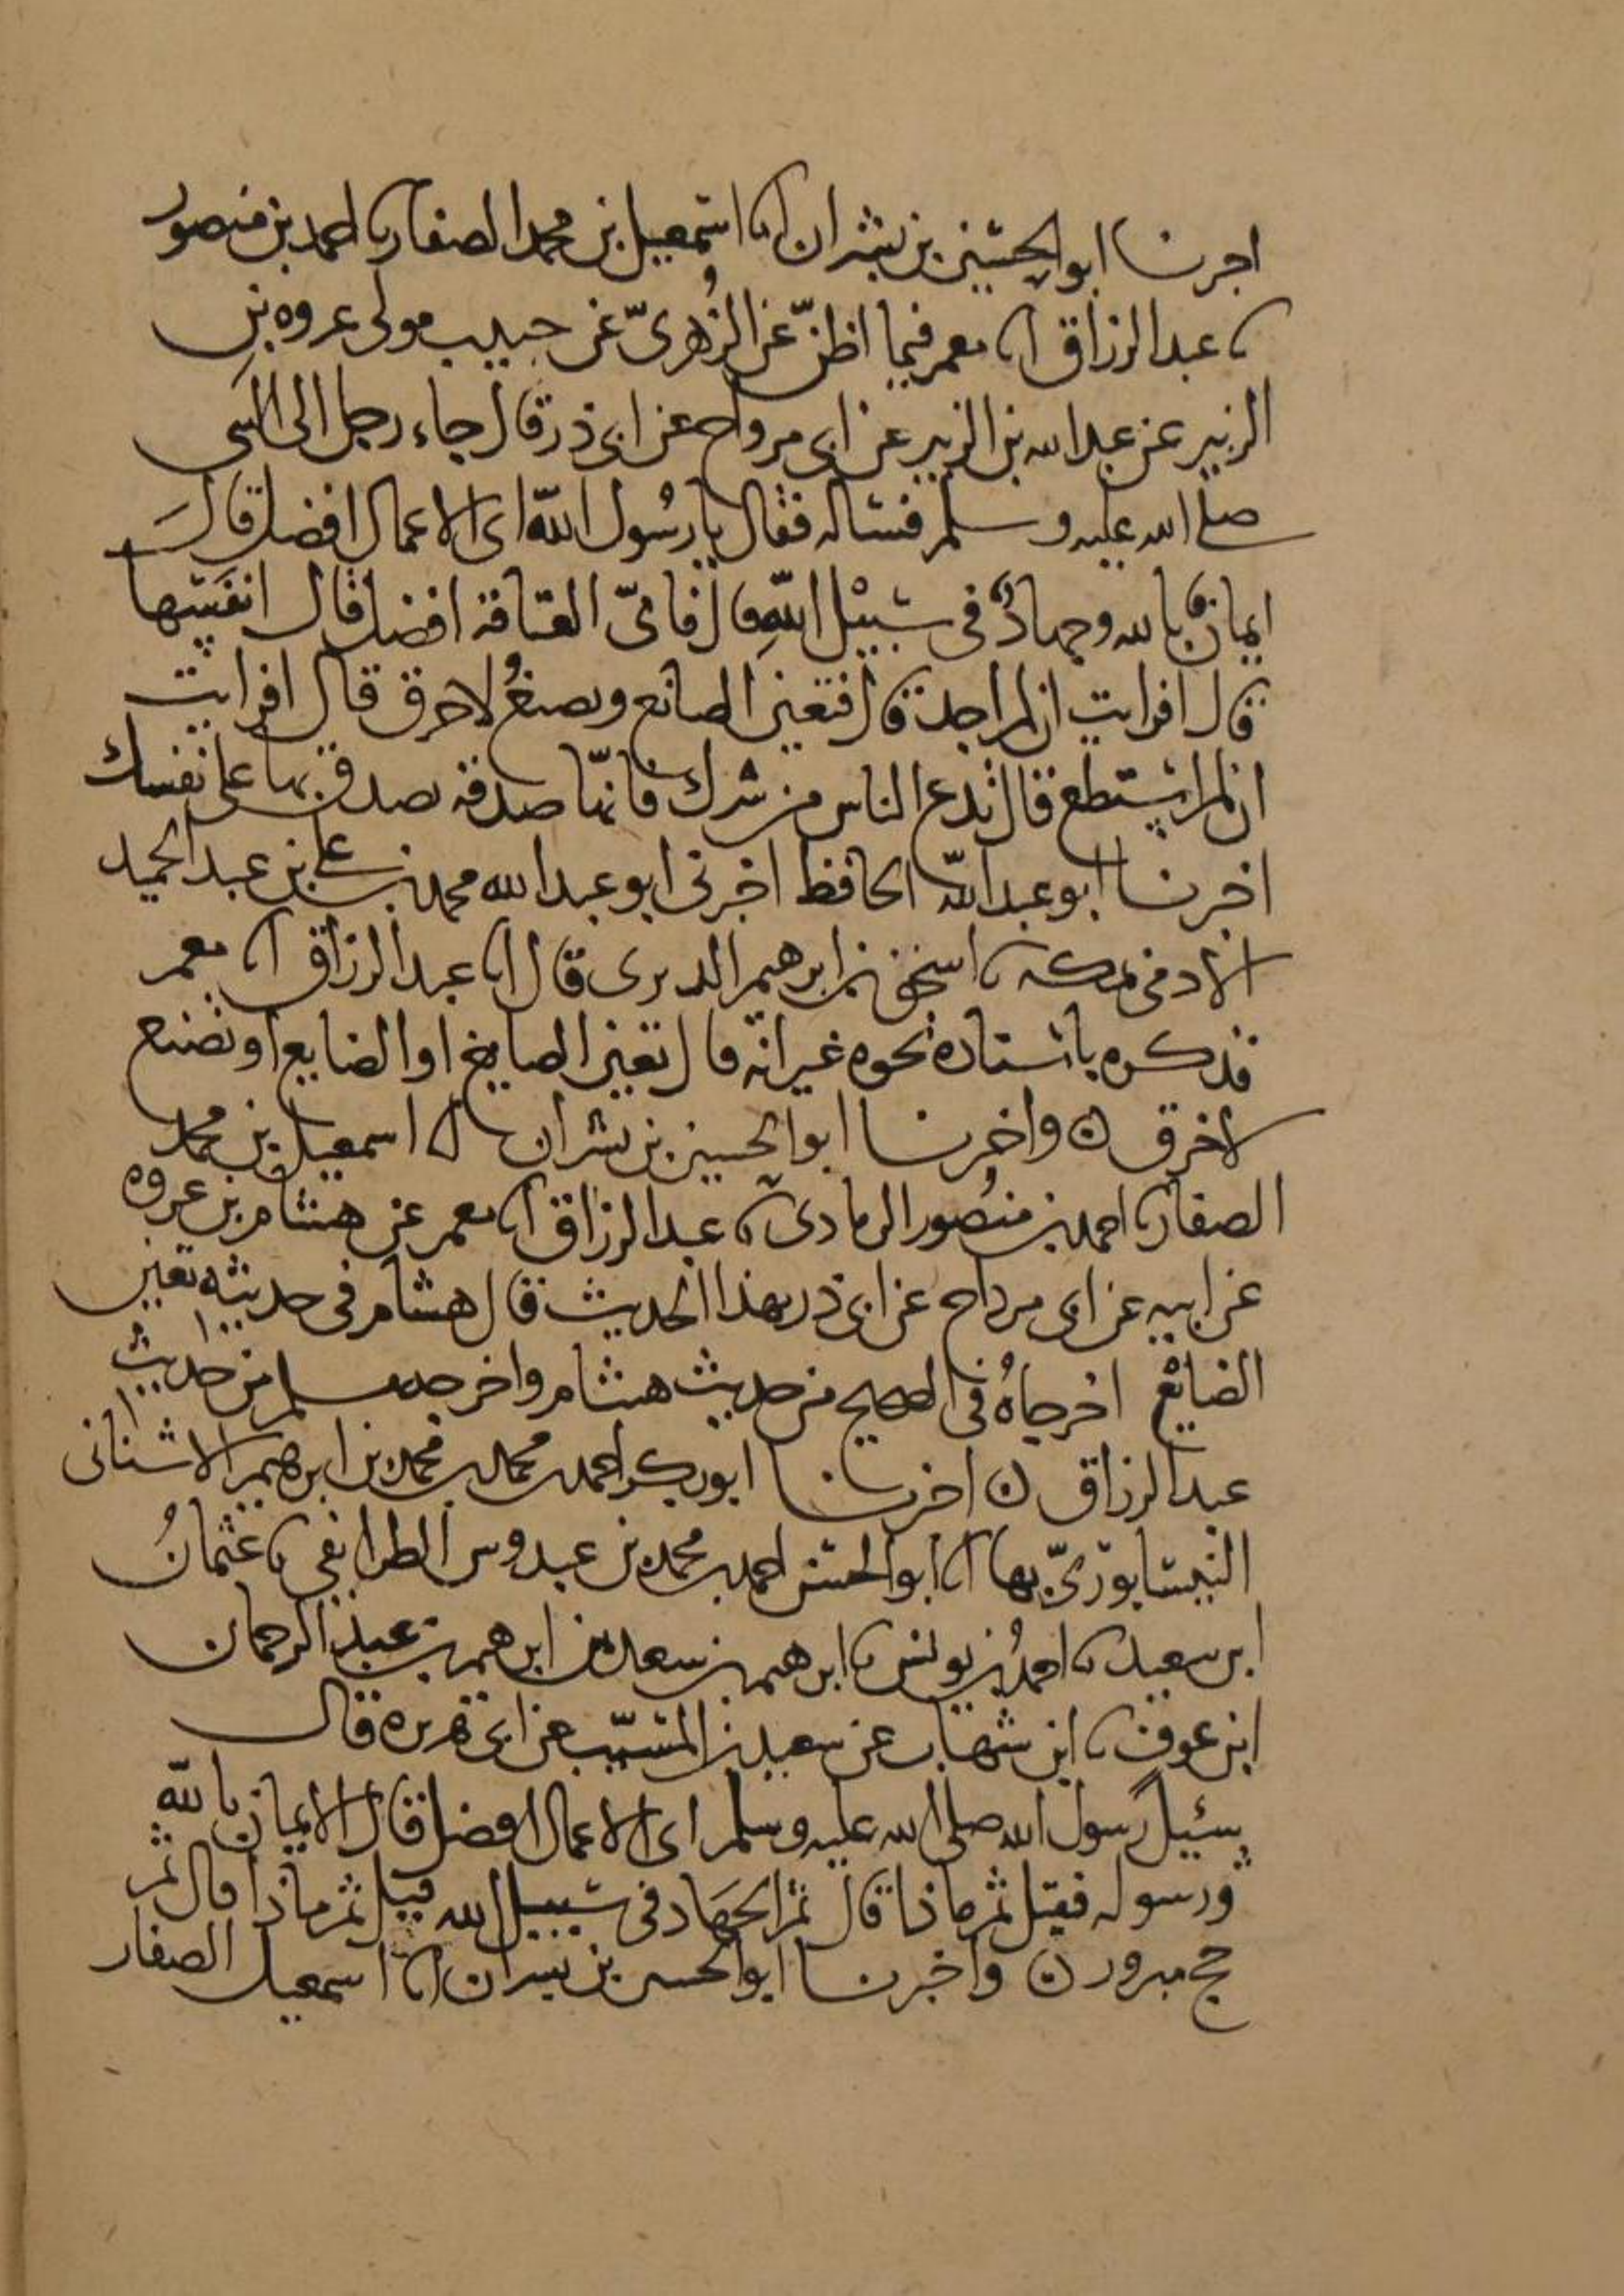 اخبرنا ابو الحسين بن بشران انا اسمعيل بن محمد الصفار نا احمد بن منصور
نا عبد الرزاق انا معمر فيما اظنّ عن الزُهريّ عن حبيب مولى عروه بن
الزبير عن عبد الله بن الزبير عن ابى مرواح عن ابى ذر قال جاء رجل الى النبى
صلى الله عليه وسلم فساله فقال يا رسُول اللّه اى الاعمال افضل قالَ
ايمانٌ بالله وجهادٌ فى سبيْل اللّهِ قال فاىّ العتاقة افضل قال انفَسها
قال افرايت ان لم اجد قال فتعين الصانع وتصنعُ لاخرق قال افرايت
ان لم استطع قال تدع الناس من شرك فانّها صدقه تصدق بها على نفسك
اخبرنا ابو عبد اللّه الحافظ اخبرنى ابو عبد الله محمد بن على بن عبد الحميد
الادمى بمكه نا اسحق بن ابرهيم الدبرى قال انا عبد الرزاق انا معمر
فذكره باسناده نحوه غير انه قال تعين الصايع او الضايع او تصنع
لاخرق ن واخبرنا ابو الحسين بن بشران انا اسمعيل بن محمد
الصفار نا احمد بن منصُور الرمادى نا عبد الرزاق انا معمر عن هشام بن عروه
عن ابيه عن ابى مرواح عن ابى ذر بهذا الحديث قال هشام فى حديثه تعين
الضائع اخرجاهُ فى الصحيح من حديث هشام واخرجه مسلم من حديث
عبد الرزاق ن اخبرنا ابو بكر احمد بن محمد بن محمد بن ابرهيم الاشنانى
النيسابورىّ بها انا ابو الحسن احمد بن محمد بن عبدوس الطرايفى نا عثمانُ
ابن سعيد نا احمدُ بن يونس نا ابرهيم بن سعد بن ابرهيم بن عبد الرحمان
ابن عوف نا ابن شهاب عن سعيد بن المسيّب عن ابى هريره قال
سئيل رسول الله صلى الله عليه وسلم اى الاعمال افضل قال الايمان باللّه
ورسوله فقيل ثم ماذا قال ثم الجهَاد فى سبيل الله قيل ثم ماذا قال ثم
حج مبرور ن واخبرنا ابو الحسين بن بشران انا اسمعيل الصفار